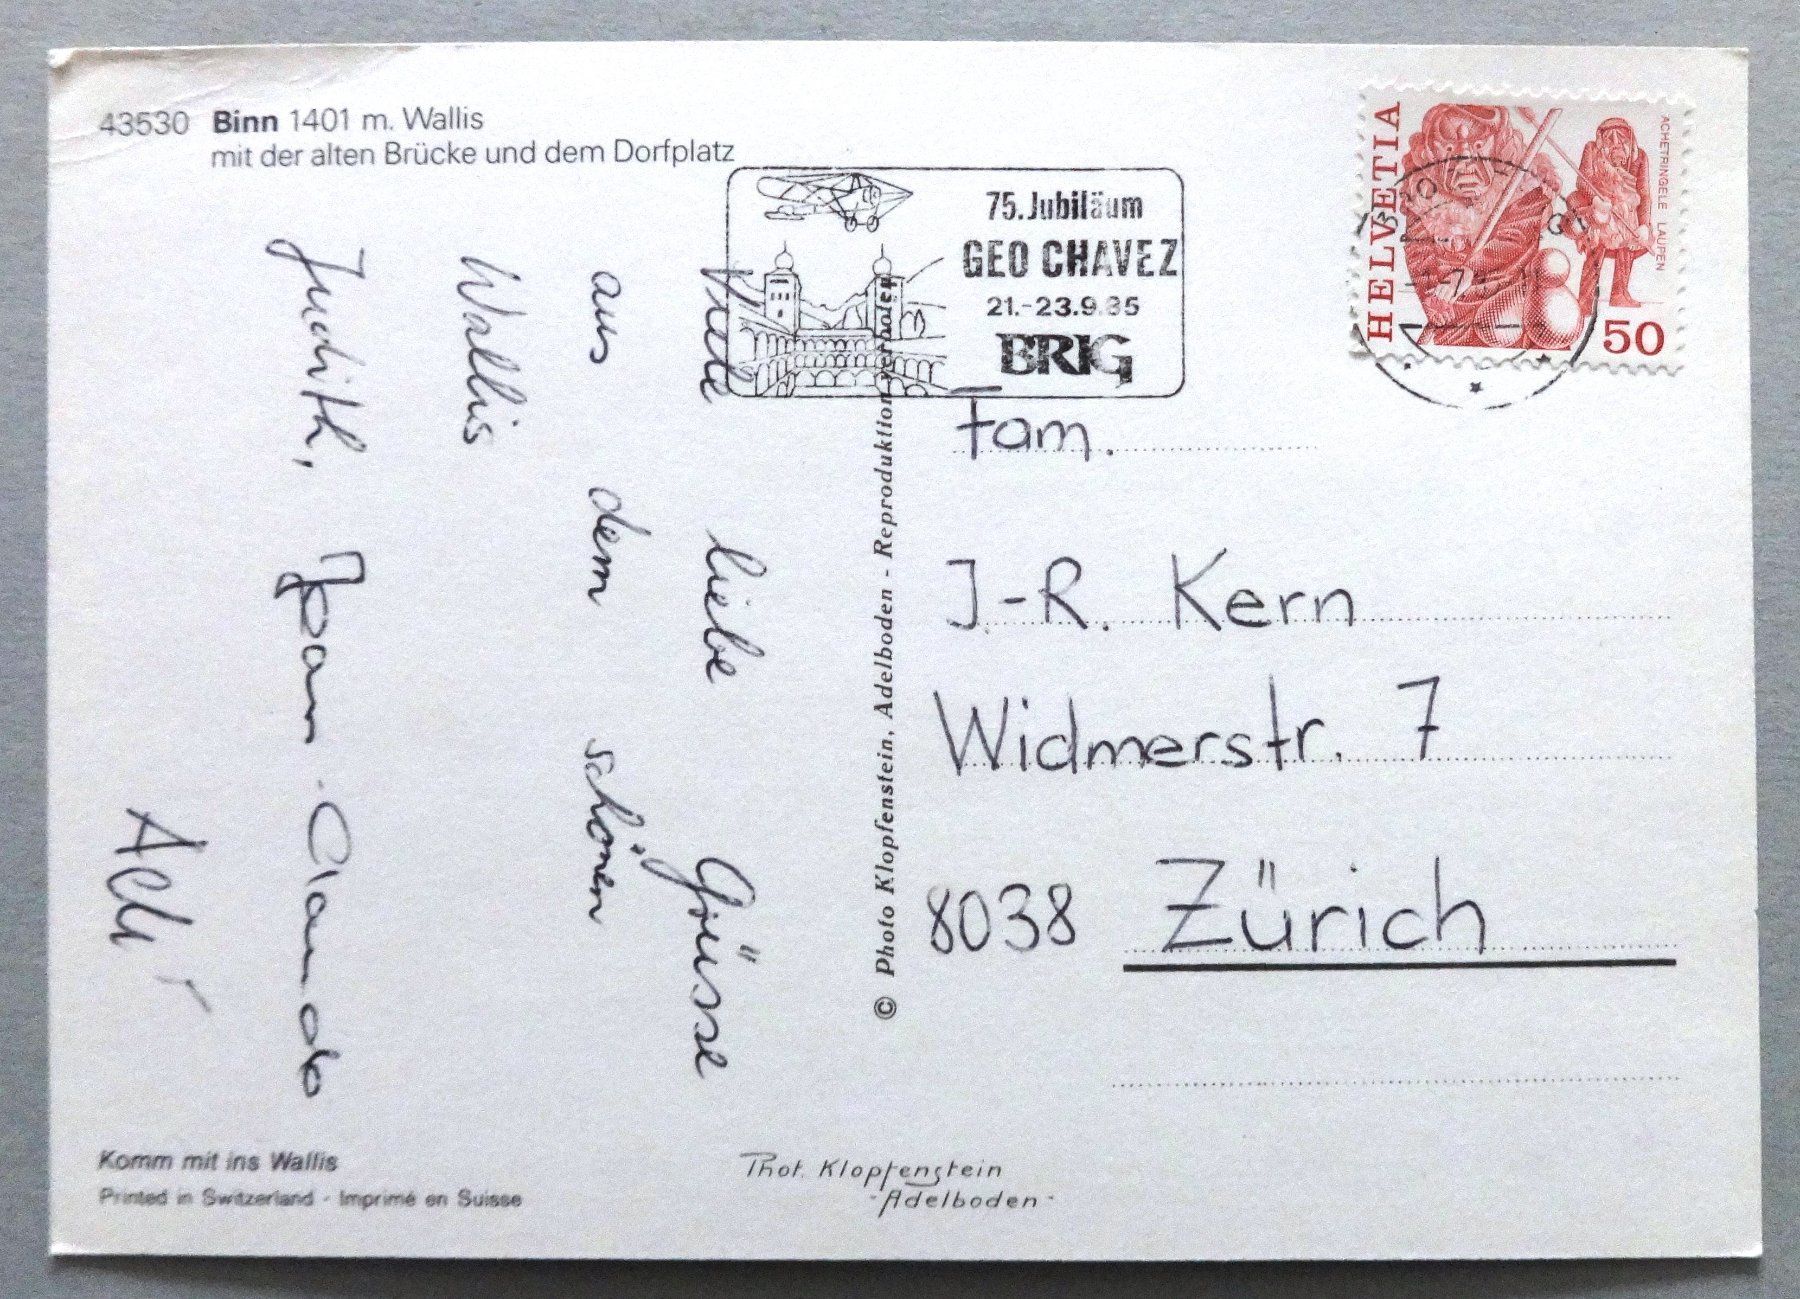 43530 Binn 1401 m. Wallis
mit der alten Brücke und dem Dorfplatz
75. Jubiläum
GEO CHAVEZ
21.-23.9.85
BRIG
HELVETIA
ACHETRINGELE LAUPEN
50
Viele liebe Grüsse
aus dem schönen
Wallis
Judith,
© Photo Klopfenstein, Adelboden - Reproduktion verboten
Fam.
J.-R. Kern
Widmerstr. 7
8038 Zürich
Komm mit ins Wallis
Printed in Switzerland - Imprimé en Suisse
Phot. Klopfenstein
- Adelboden -